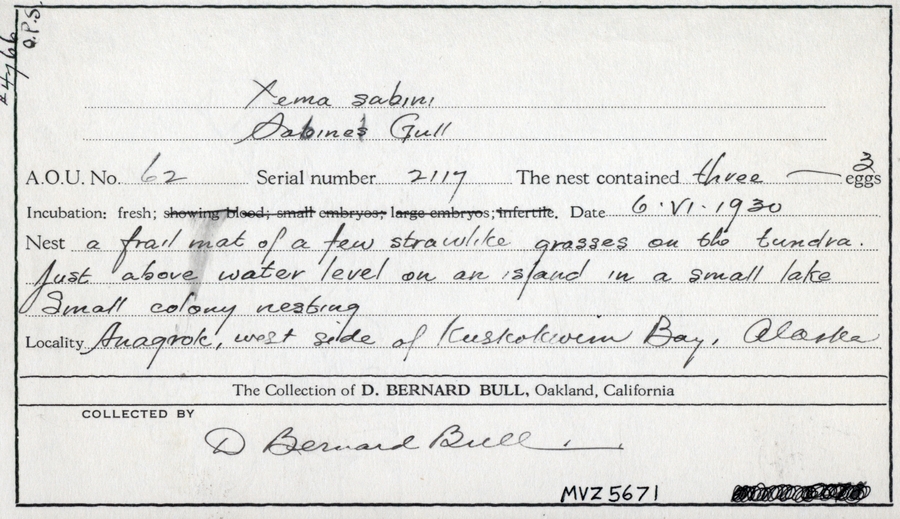 Xema sabini
Sabines Gull
A.O.U. No. 62 Serial number 2117 The nest contained three 3 eggs
Incubation: fresh; showing blood; small embryos; large embryos; infertile. Date 6·VI·1930
Nest a frail mat of a few strawlike grasses on the tundra.
Just above water level on an island in a small lake
Small colony nesting
Locality Anagrok, west side of Kuskokwim Bay, Alaska
The Collection of D. BERNARD BULL, Oakland, California
COLLECTED BY
D Bernard Bull
MVZ 5671
O.P.S.